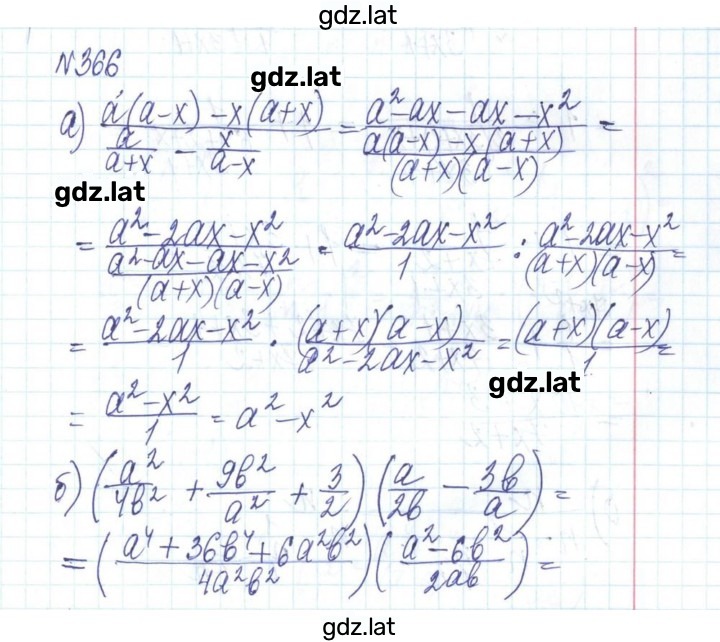 gdz.lat
№366
gdz.lat
а) (a(a-x) - x(a+x))/(a/(a+x) - x/(a-x)) = (a²-ax-ax-x²)/((a(a-x)-x(a+x))/((a+x)(a-x))) =
gdz.lat
= (a²-2ax-x²)/((a²-ax-ax-x²)/((a+x)(a-x))) = (a²-2ax-x²)/1 : (a²-2ax-x²)/((a+x)(a-x)) =
= (a²-2ax-x²)/1 · ((a+x)(a-x))/(a²-2ax-x²) = ((a+x)(a-x))/1 =
gdz.lat
= (a²-x²)/1 = a²-x²
б) (a²/4b² + 9b²/a² + 3/2)(a/2b - 3b/a) =
= ((a⁴+36b⁴+6a²b²)/4a²b²)((a²-6b²)/2ab) =
gdz.lat